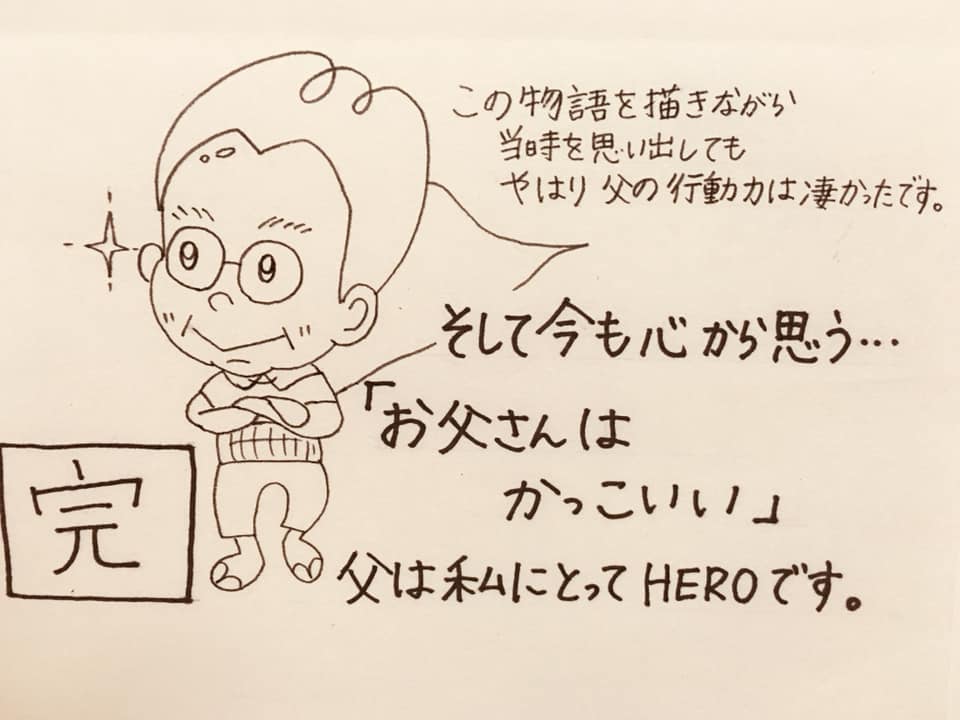 この物語を描きながら
当時を思い出しても
やはり父の行動力は凄かったです。
そして今も心から思う…
「お父さんは
かっこいい」
父は私にとってHEROです。
完